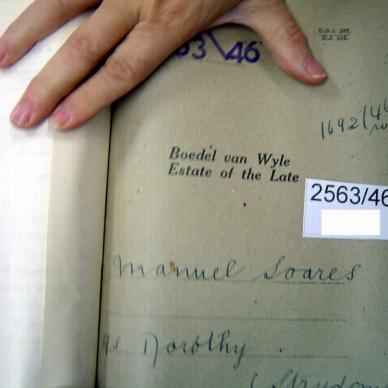 63 \46
1692/46
Boedel van Wyle
Estate of the Late
2563/46
Manuel Soares
Dorothy